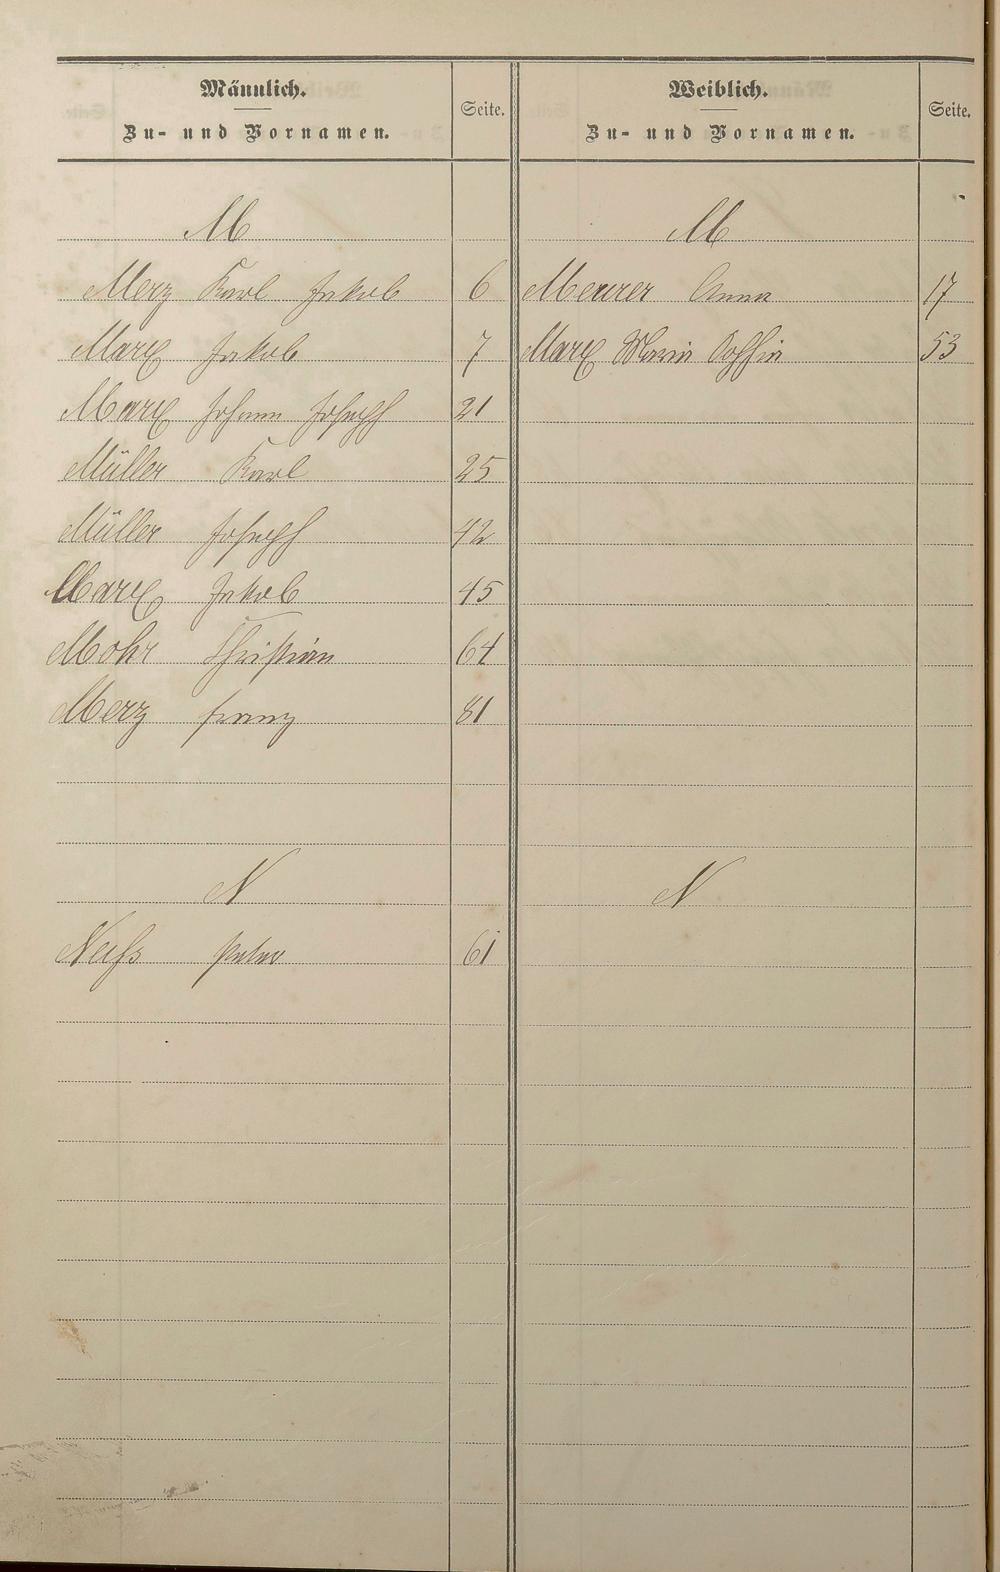 Männlich.
Zu- und Vornamen.
Seite.
M
Merz Karl Jakob 6
Marx Jakob 7
Marx Johann Joseph 21
Müller Karl 25
Müller Joseph 42
Marx Jakob 45
Mohr Christian 64
Merz Franz 81
N
Neiß Peter 61
Weiblich.
Zu- und Vornamen.
Seite.
M
Meurer Anna 17
Marx Maria Sophia 53
N